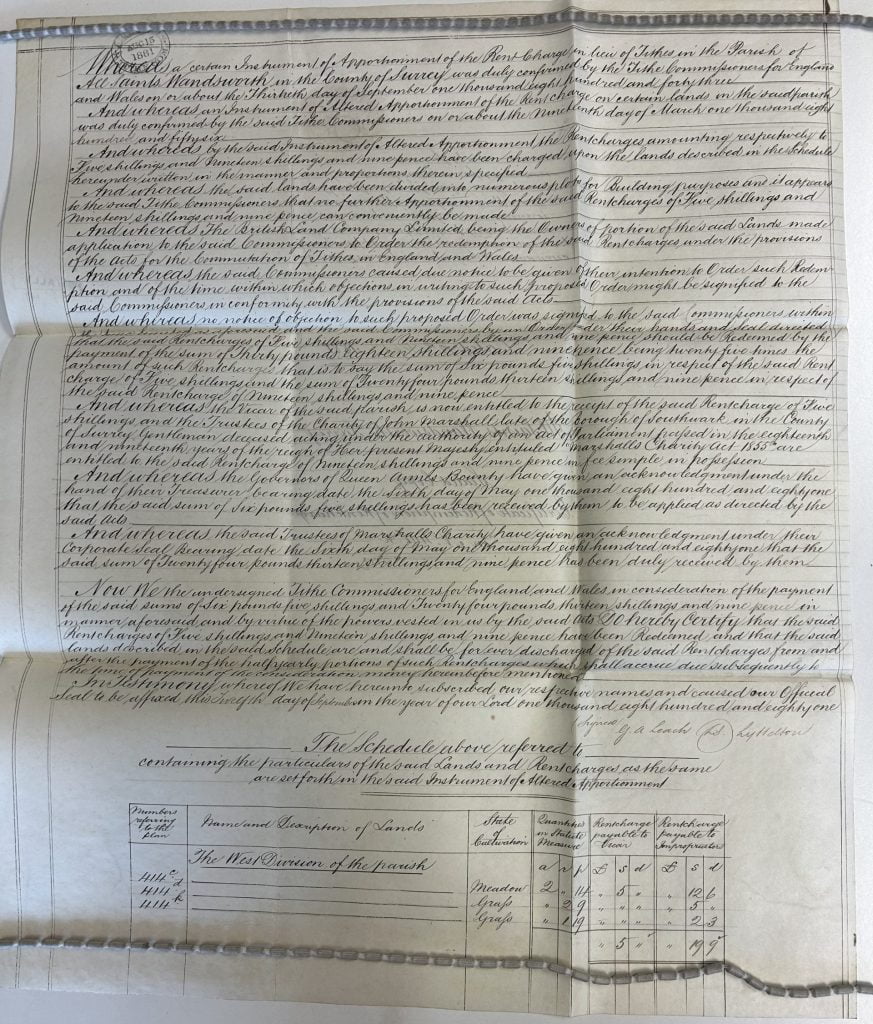 AUG 15
1881
Whereas a certain Instrument of Apportionment of the Rent Charge in lieu of Tithes in the Parish of
All Saints Wandsworth in the County of Surrey was duly confirmed by the Tithe Commissioners for England
and Wales on or about the Thirtieth day of September one thousand eight hundred and forty three
And whereas an Instrument of Altered Apportionment of the Rentcharge on certain lands in the said parish
was duly confirmed by the said Tithe Commissioners on or about the Nineteenth day of March one thousand eight
hundred and fifty six
And whereas by the said Instrument of Altered Apportionment the Rentcharges amounting respectively to
Five shillings and Nineteen shillings and nine pence have been charged upon the lands described in the Schedule
hereunder written in the manner and proportions therein specified
And whereas the said lands have been divided into numerous plots for Building purposes and it appears
to the said Tithe Commissioners that no further Apportionment of the said Rentcharges of Five shillings and
Nineteen shillings and nine pence can conveniently be made
And whereas The British Land Company Limited being the Owners of portion of the said Lands made
application to the said Commissioners to Order the redemption of the said Rentcharges under the provisions
of the Acts for the Commutation of Tithes in England and Wales
And whereas the said Commissioners caused due notice to be given of their intention to Order such Redem-
ption and of the time within which objections in writing to such proposed Order might be signified to the
said Commissioners in conformity with the provisions of the said Acts
And whereas no notice of objection to such proposed Order was signified to the said Commissioners within
and the said Commissioners by an Order under their hands and Seal directed
that the said Rentcharges of Five shillings and Nineteen shillings and nine pence should be Redeemed by the
payment of the sum of Thirty pounds eighteen shillings and ninepence being twenty five times the
amount of such Rentcharges that is to say the sum of Six pounds five shillings in respect of the said Rent
charge of Five shillings and the sum of Twenty four pounds thirteen shillings and nine pence in respect of
the said Rentcharge of Nineteen shillings and nine pence
And whereas the Vicar of the said parish is now entitled to the receipt of the said Rentcharge of Five
shillings and the Trustees of the Charity of John Marshall late of the borough of Southwark in the County
of Surrey Gentleman deceased acting under the authority of an act of Parliament passed in the eighteenth
and nineteenth years of the reign of Her present Majesty entituled "Marshalls Charity Act 1855" are
entitled to the said Rentcharge of Nineteen shillings and nine pence in fee simple in possession
And whereas the Governors of Queen Annes Bounty have given an acknowledgment under the
hand of their Treasurer bearing date the Sixth day of May one thousand eight hundred and eighty one
that the said sum of Six pounds five shillings has been received by them to be applied as directed by the
said Acts
And whereas the said Trustees of Marshalls Charity have given an acknowledgment under their
Corporate Seal Bearing date the Sixth day of May one thousand eight hundred and eighty one that the
said sum of Twenty four pounds thirteen shillings and nine pence has been duly received by them
Now We the undersigned Tithe Commissioners for England and Wales in consideration of the payment
of the said sums of Six pounds five shillings and Twenty four pounds thirteen shillings and nine pence in
manner aforesaid and by virtue of the powers vested in us by the said Acts Do hereby Certify that the said
Rentcharges of Five shillings and Nineteen shillings and nine pence have been Redeemed and that the said
lands described in the said Schedule are and shall be for ever discharged of the said Rentcharges from and
after the payment of the half yearly portions of such Rentcharges which shall accrue due subsequently to
the time of payment of the consideration money hereinbefore mentioned
In Testimony whereof We have hereunto subscribed our respective names and caused our Official
Seal to be affixed this Twelfth day of September in the year of our Lord one thousand eight hundred and eighty one
signed G A Leach LS Lyttelton
The Schedule above referred to
containing the particulars of the said Lands and Rentcharges as the same
are set forth in the said Instrument of Altered Apportionment
Numbers referring to the plan Name and Description of Lands State of Cultivation Quantities in Statute Measure Rentcharge payable to Vicar Rentcharge payable to Impropriator
The West Division of the parish a r p £ s d £ s d
414c Meadow 2 " 14 " 5 " " 12 6
414d Grass " 2 9 " " " " 5 "
414k Grass " 1 19 " " " " 2 3
" 5 " " 19 9